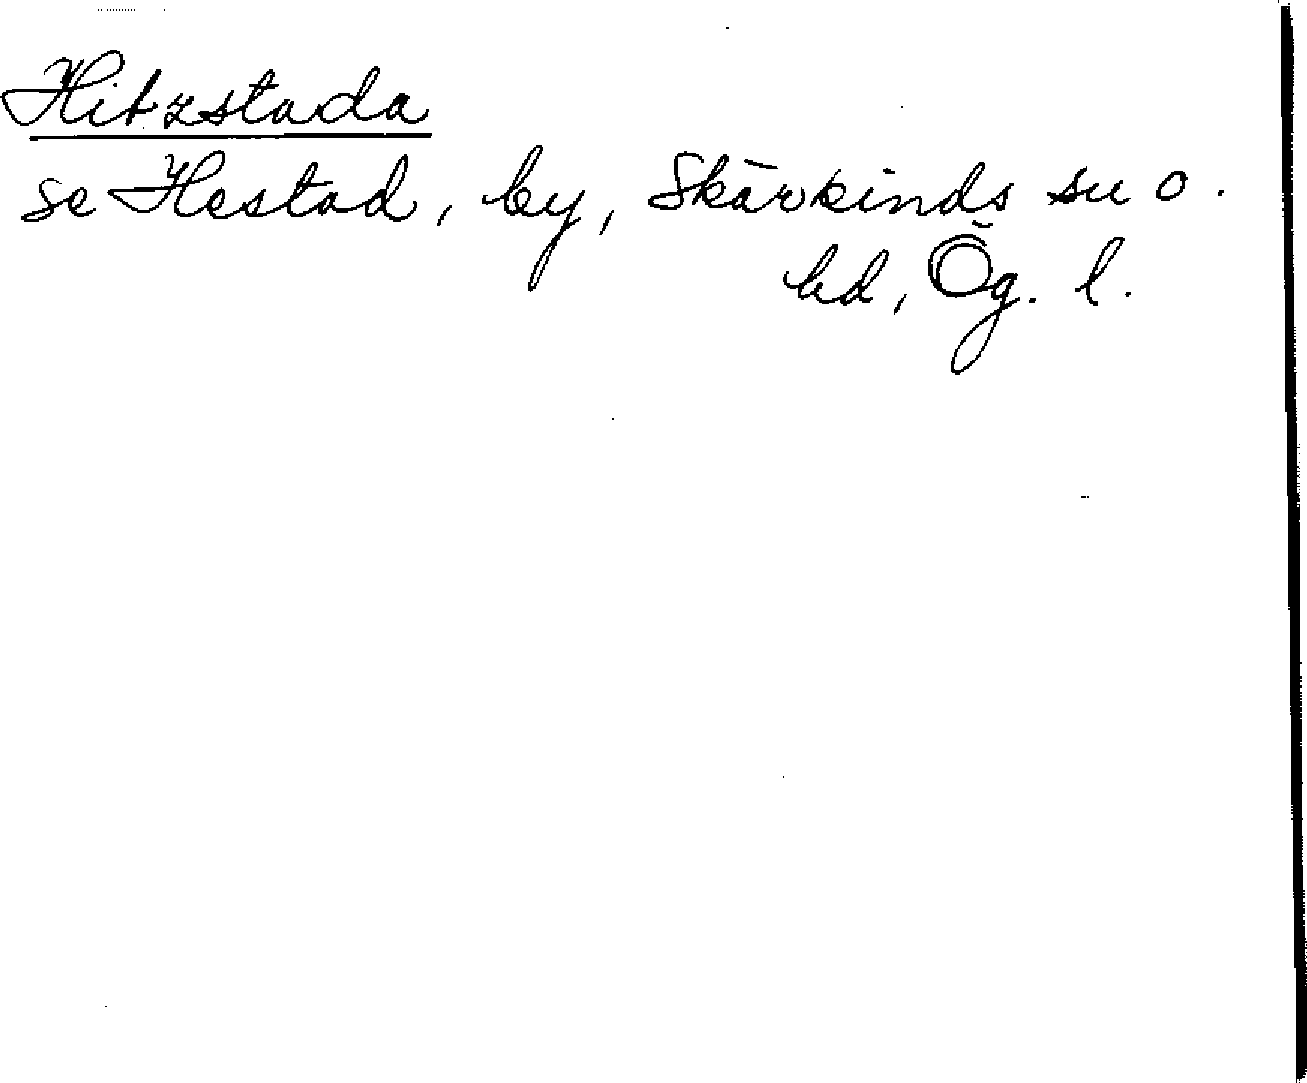 Hitzstada
se Hestad, by, Skärkinds sn o.
hd, Ög. l.